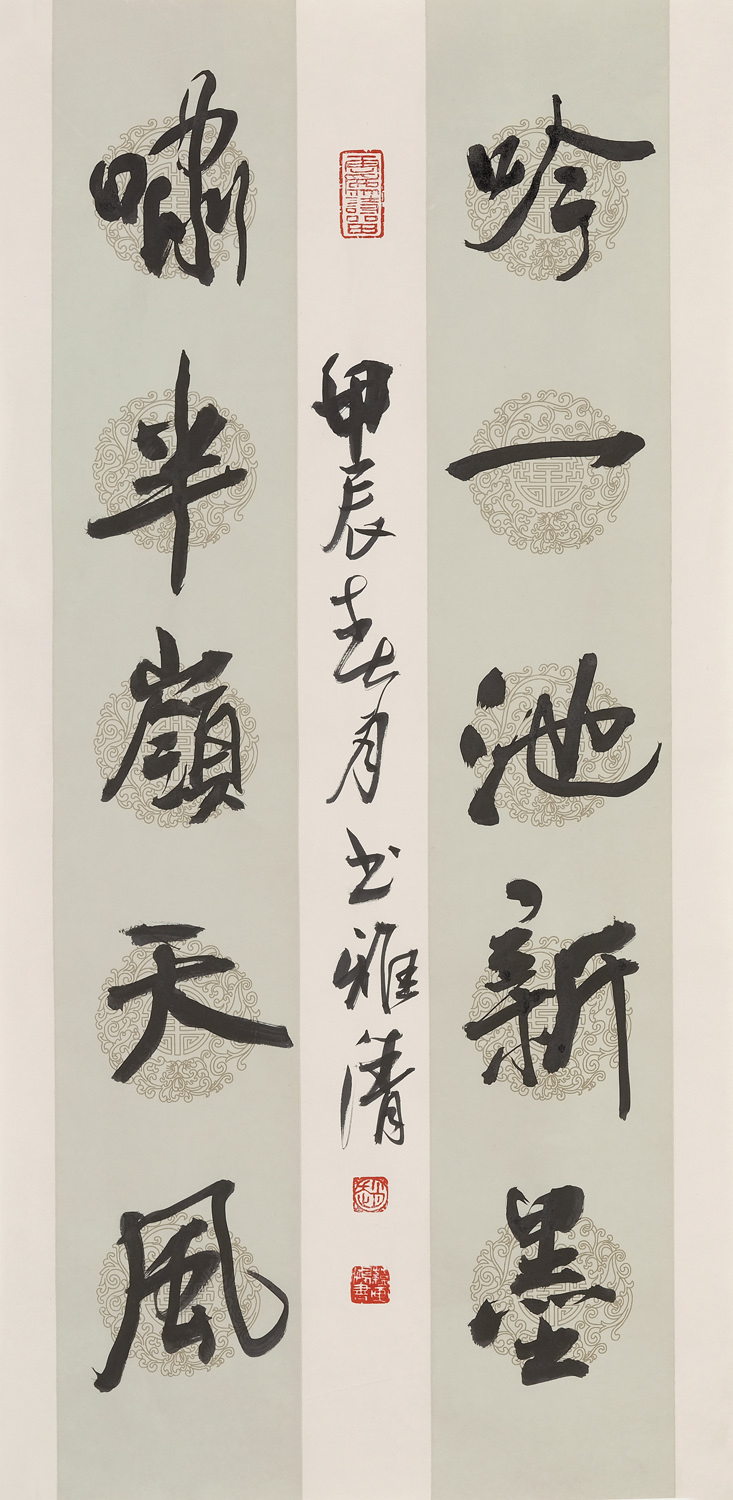 吟一池新墨
嘯半嶺天風
甲辰春月书雅清